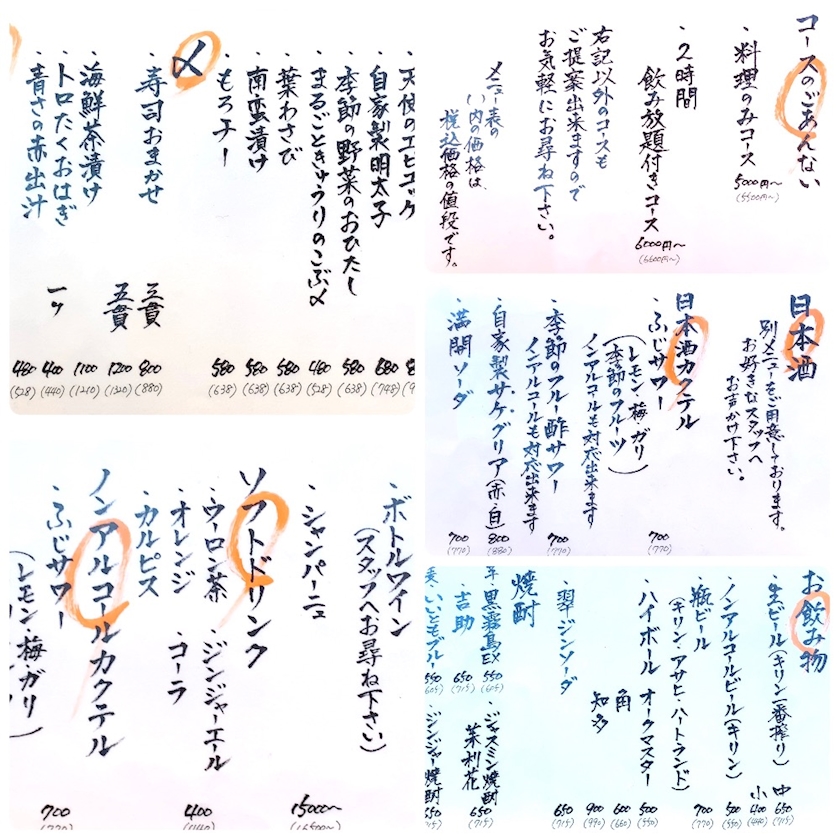 ・天使のエビコック
・自家製明太子 680 (748)
・季節の野菜のおひたし 580 (638)
・まるごときゅうりのこぶ〆 480 (528)
・葉わさび 580 (638)
・南蛮漬け 580 (638)
・もろチー 580 (638)
〆
・寿司おまかせ 三貫 800 (880)
五貫 1200 (1320)
・海鮮茶漬け 1100 (1210)
・トロたくおはぎ 一ケ 400 (440)
・青さの赤出汁 480 (528)
コースのごあんない
・料理のみコース 5000円〜 (5500円〜)
・2時間
飲み放題付きコース 6000円〜 (6600円〜)
右記以外のコースも
ご提案出来ますので
お気軽にお尋ね下さい。
メニュー表の
()内の価格は、
税込価格の値段です。
日本酒
別メニューをご用意しております。
お好きなスタッフへ
お声かけ下さい。
日本酒カクテル
・ふじサワー 700 (770)
(レモン・梅・ガリ
季節のフルーツ)
ノンアルコールも対応出来ます
・季節のフルー酢サワー 700 (770)
ノンアルコールも対応出来ます
・自家製サケグリア(赤・白) 800 (880)
・満開ソーダ 700 (770)
・ボトルワイン
(スタッフへお尋ね下さい)
・シャンパーニュ 15000〜 (16500〜)
ソフトドリンク
・ウーロン茶 ・ジンジャーエール 400 (440)
・オレンジ ・コーラ
・カルピス
ノンアルコールカクテル
・ふじサワー 700 (770)
(レモン・梅・ガリ
お飲み物
・生ビール(キリン一番搾り) 中 650 (715)
小 400 (440)
・ノンアルコールビール(キリン) 500 (550)
・瓶ビール 700 (770)
(キリン・アサヒ・ハートランド)
・ハイボール オークマスター 500 (550)
角 600 (660)
知多 900 (990)
・翠ジンソーダ 650 (715)
焼酎
芋 黒霧島EX 550 (605) ・ジャスミン焼酎
・吉助 650 (715) 茉莉花 650 (715)
麦 いいともブルー 550 (605) ・ジンジャー焼酎 650 (715)